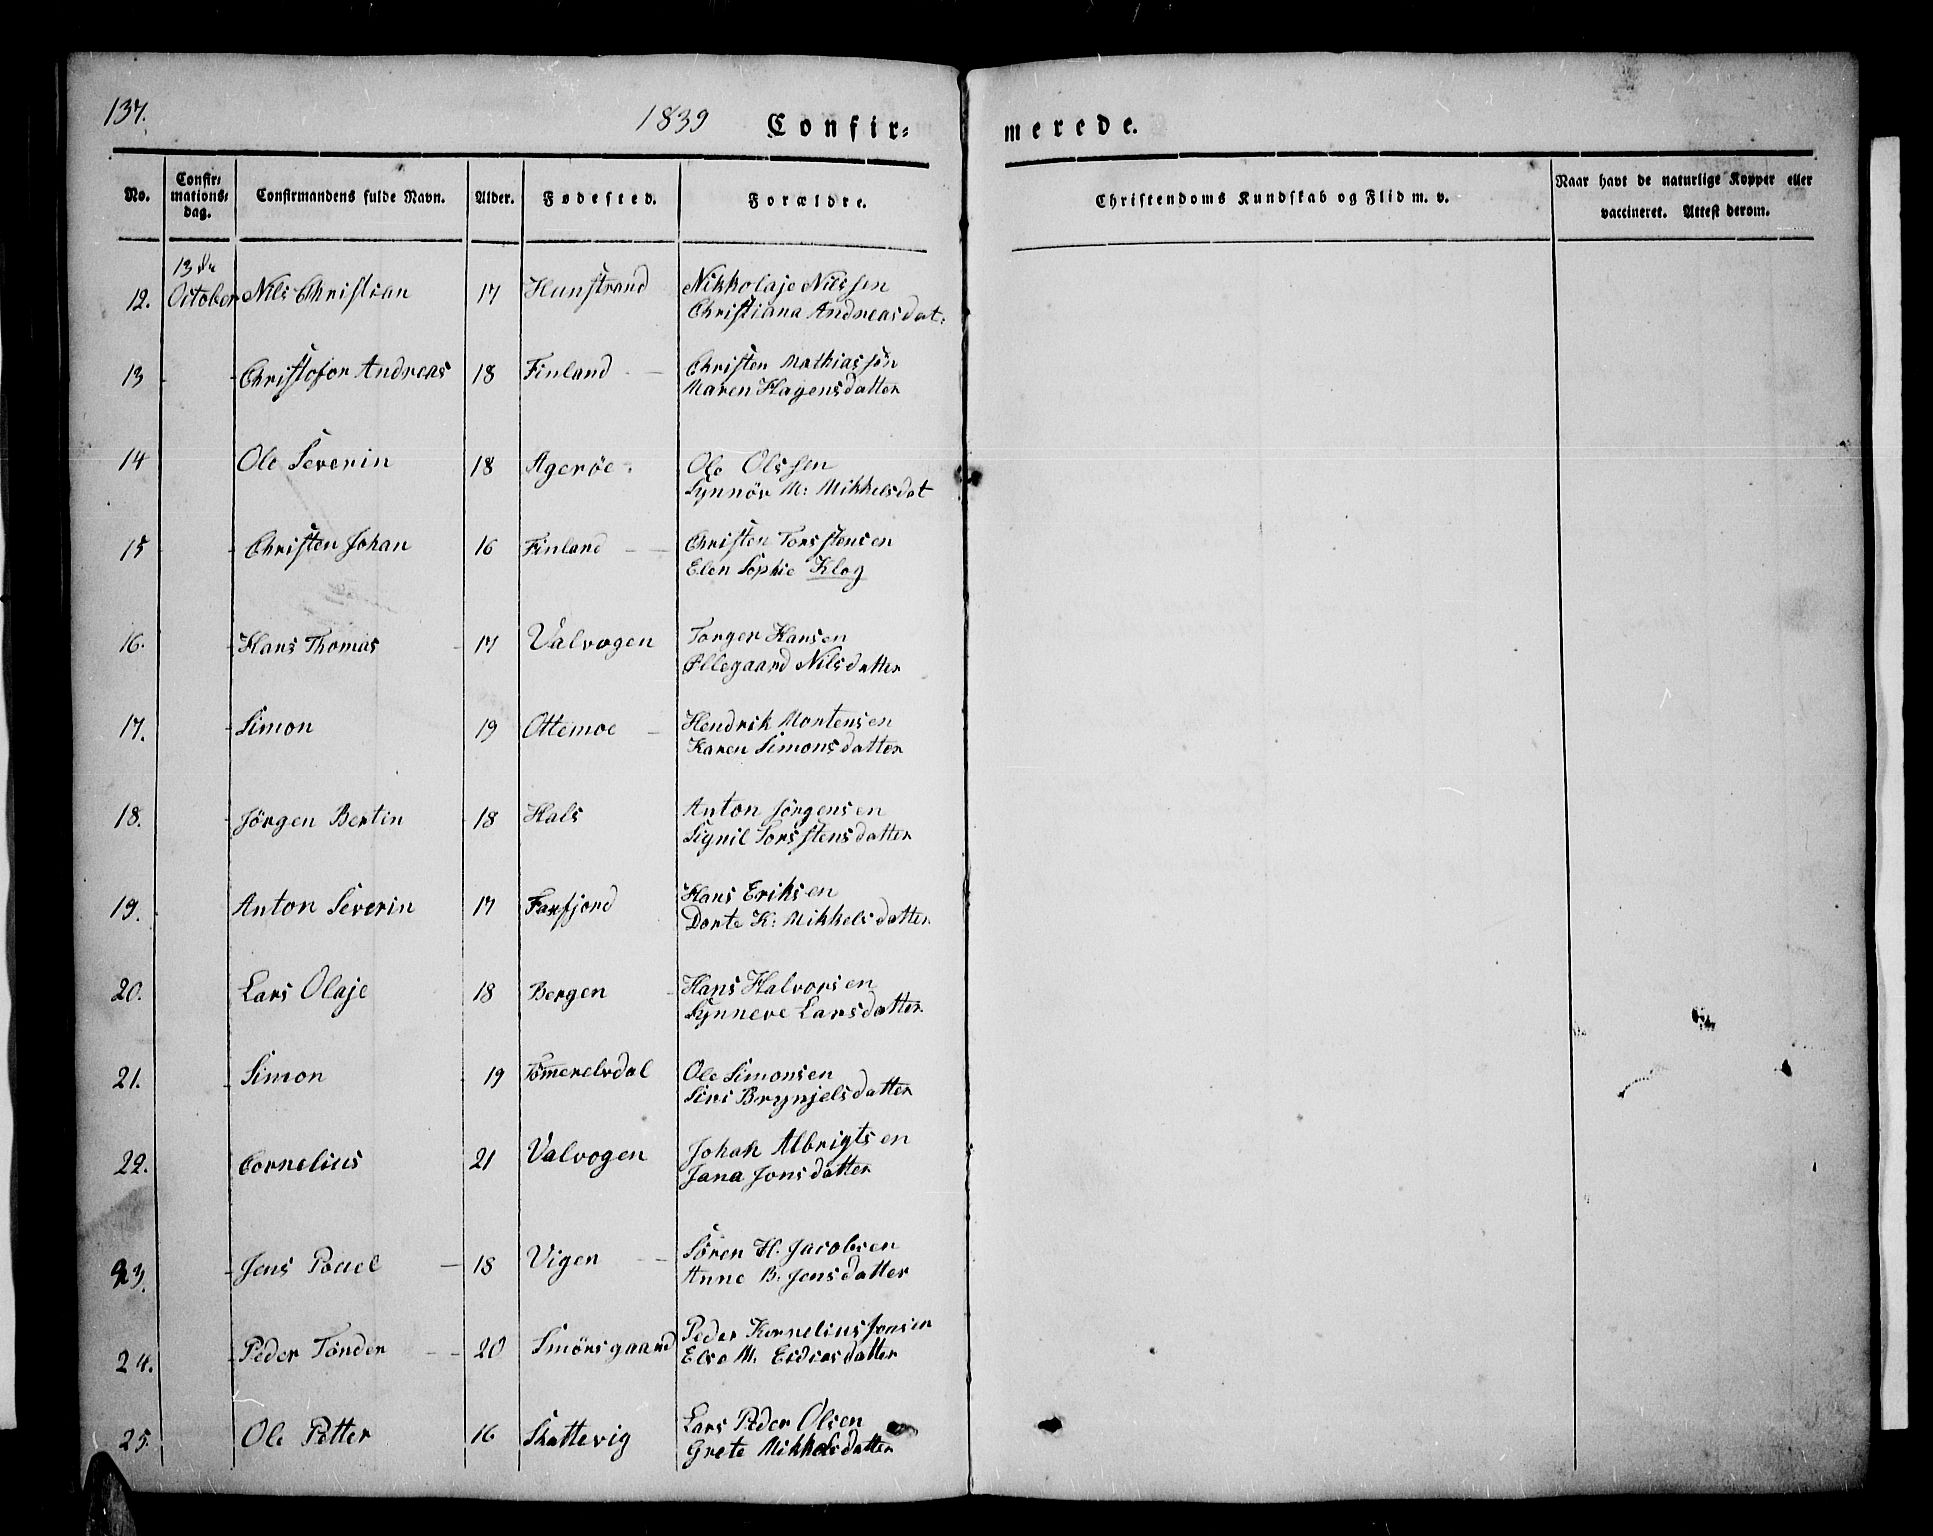 137.
1839 Confir= merede.
No. Confir=mations=dag. Confirmandens fulde Navn. Alder. Fødested. Forældre. Christendoms Kundskab og Flid m. v. Naar havt de naturlige Kopper eller vaccineret. Attest derom.
13de
12. October Nils Christian 17 Hunstrand Nikkolaje Nilssen
Christiana Andreasdat:
13 Christofor Andreas 18 Finland Christen Mathiassøn
Maren Hagensdatter
14 Ole Severin 18 Agerøe Ole Olssen
Synnör M: Mikkelsdat
15 Christen Johan 16 Finland Christen Torsstensen
Elen Sophie Klog
16. Hans Thomas 17 Valvogen Torger Hansen
Ollegaard Nilsdatter
17. Simon 19 Ottemoe Hendrik Mortensen
Karen Simonsdatter
18. Jörgen Bertin 18 Hals Anton Jörgensen
Signil Torsstensdatter
19. Anton Severin 17 Farfjord Hans Eriksen
Dorte K: Mikkelsdatter
20. Lars Olaje 18 Bergen Hans Halvorsen
Synneve Larsdatter
21. Simon 19 Tömerelvdal Ole Simonsen
Siri Brynjelsdatter
22. Cornelius 21 Valvogen Johan Albrigtsen
Jana Jonsdatter
23. Jens Pouel 18 Vigen Sören H. Jacobsen
Anne B. Jensdatter
24. Peder Tönder 20 Smörsgaard Peder
Else M. Esdrasdatter
25. Ole Petter 16 Skattevig Lars Peder Olsen
Grete Mikkelsdatter